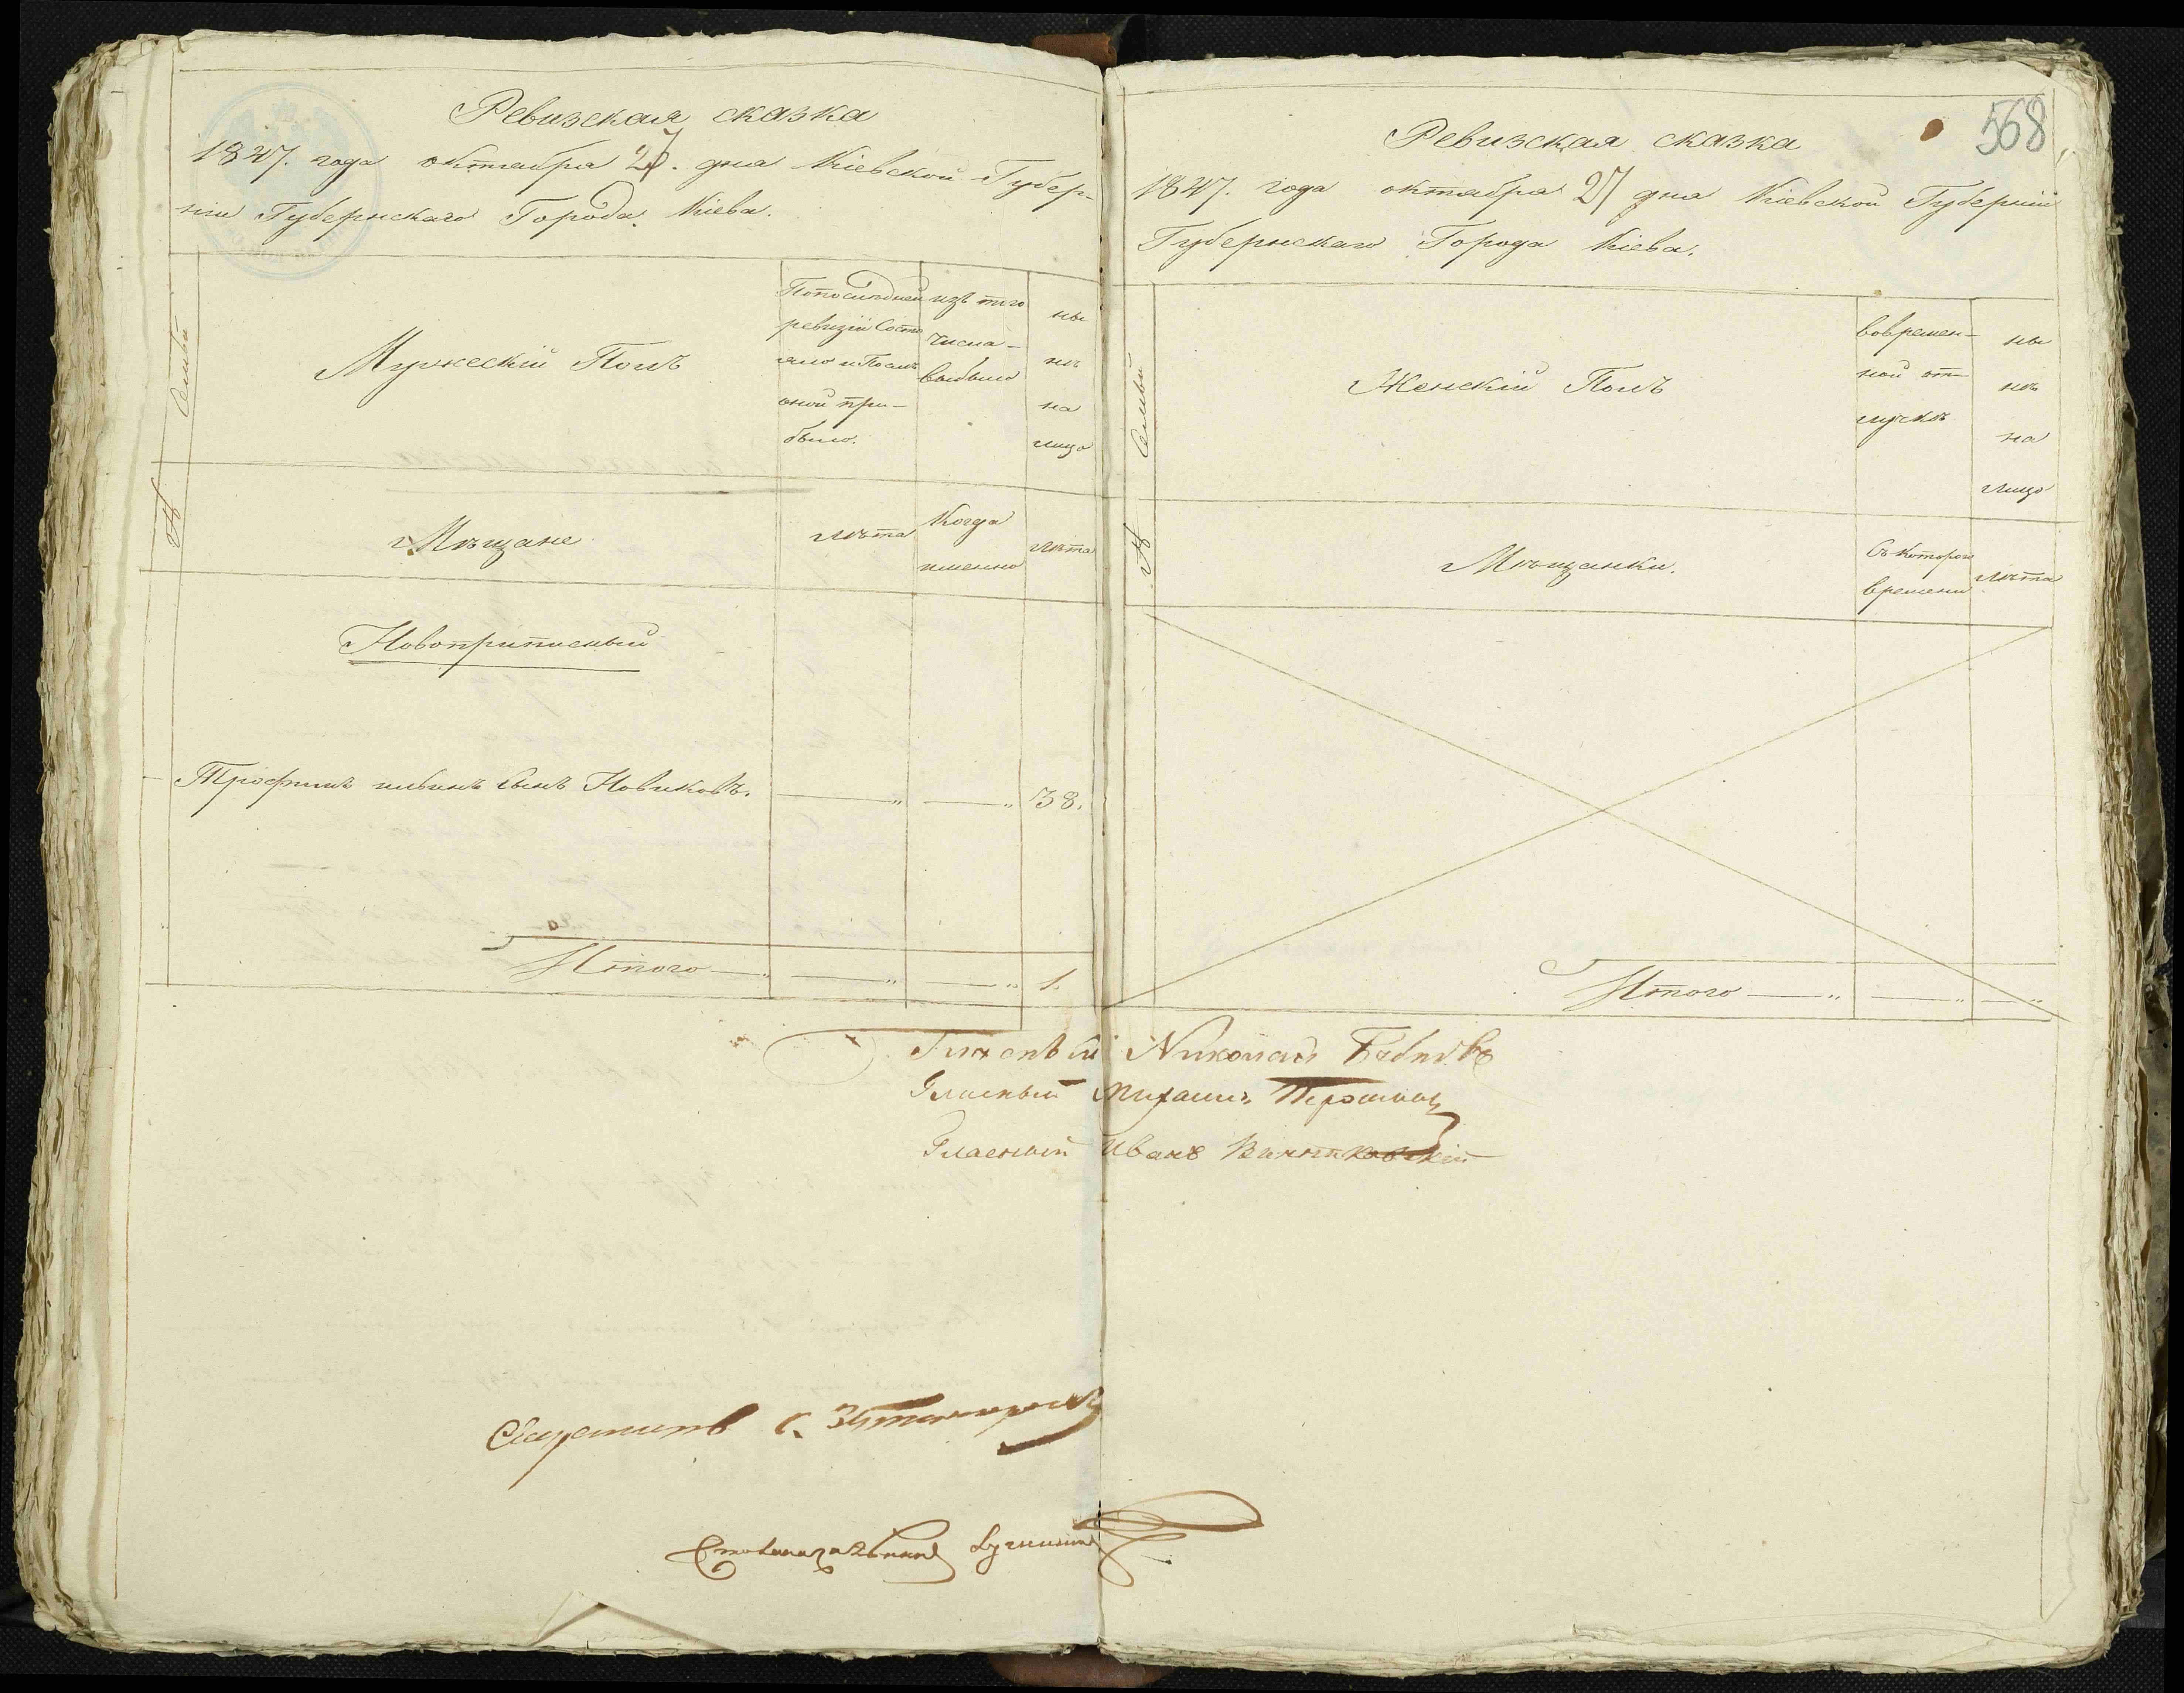 Ревизская сказка
1847. года октября 27. дня Кіевской Губер-
ніи Губернскаго Города Кіева.
№ Семьи
Мужескій Полъ
Попослѣдней
ревизіи Состо
яло и Послѣ
оной при-
было.
изъ того
числа
выбыло
ны
нѣ
на
лицо
Мѣщане
лѣта
Когда
именно
лѣта
Новоприписный
Трофимъ ильинъ сынъ Новиковъ. 38.
Итого 1.
568
Ревизская сказка
1847. года октября 27 дня Кіевской Губерніи
Губернскаго Города Кіева.
№ Семьи
Женскій Полъ
вовремен-
ной от-
лучкѣ
ны
нѣ
на
лицо
Мѣщанки.
Съ котораго
времени
лѣта
Итого
Гласный Николай
Гласный Михаилъ
Гласный Иванъ
Секретарь
Столоначальникъ